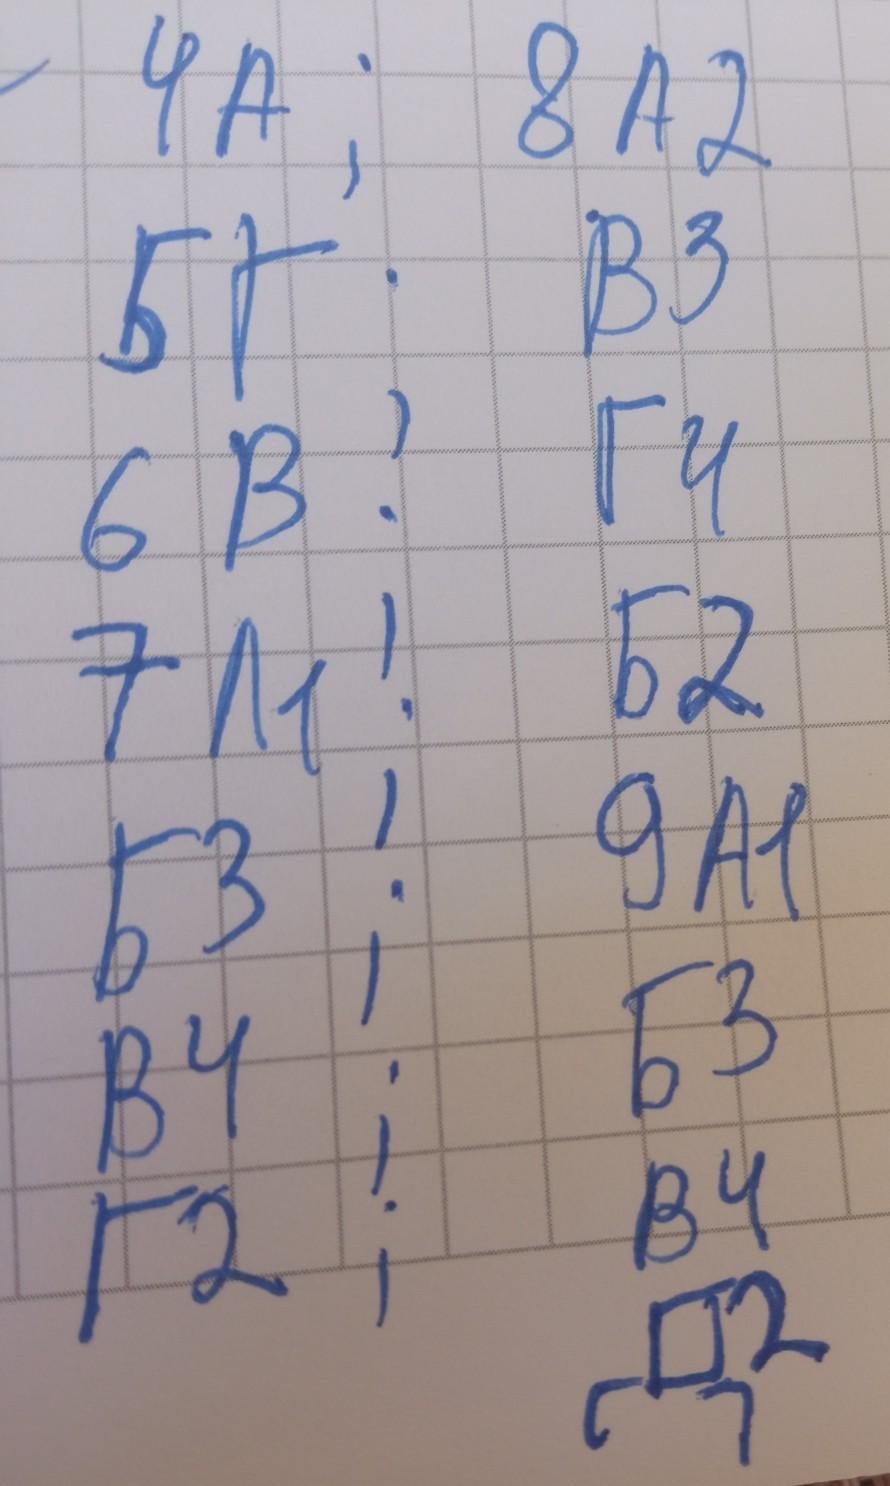 4А; 8А2
5Г; В3
6В; Г4
7А1; Б2
Б3; 9А1
В4; Б3
Г2; В4
Д2